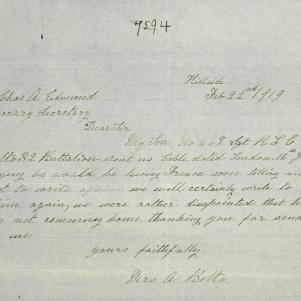 7594
Hillside
Feb 22nd 1919
Chas A Edmund
Dear Sir
My Son No 447 Sgt R L C
32 Battalion sent us Cable dated London 16th
he would be leaving France soon telling us
to write we well certainly write to
again, we were rather disapointed that he
not comming home, thanking you for
me
yours faithfully
Mrs A Botto